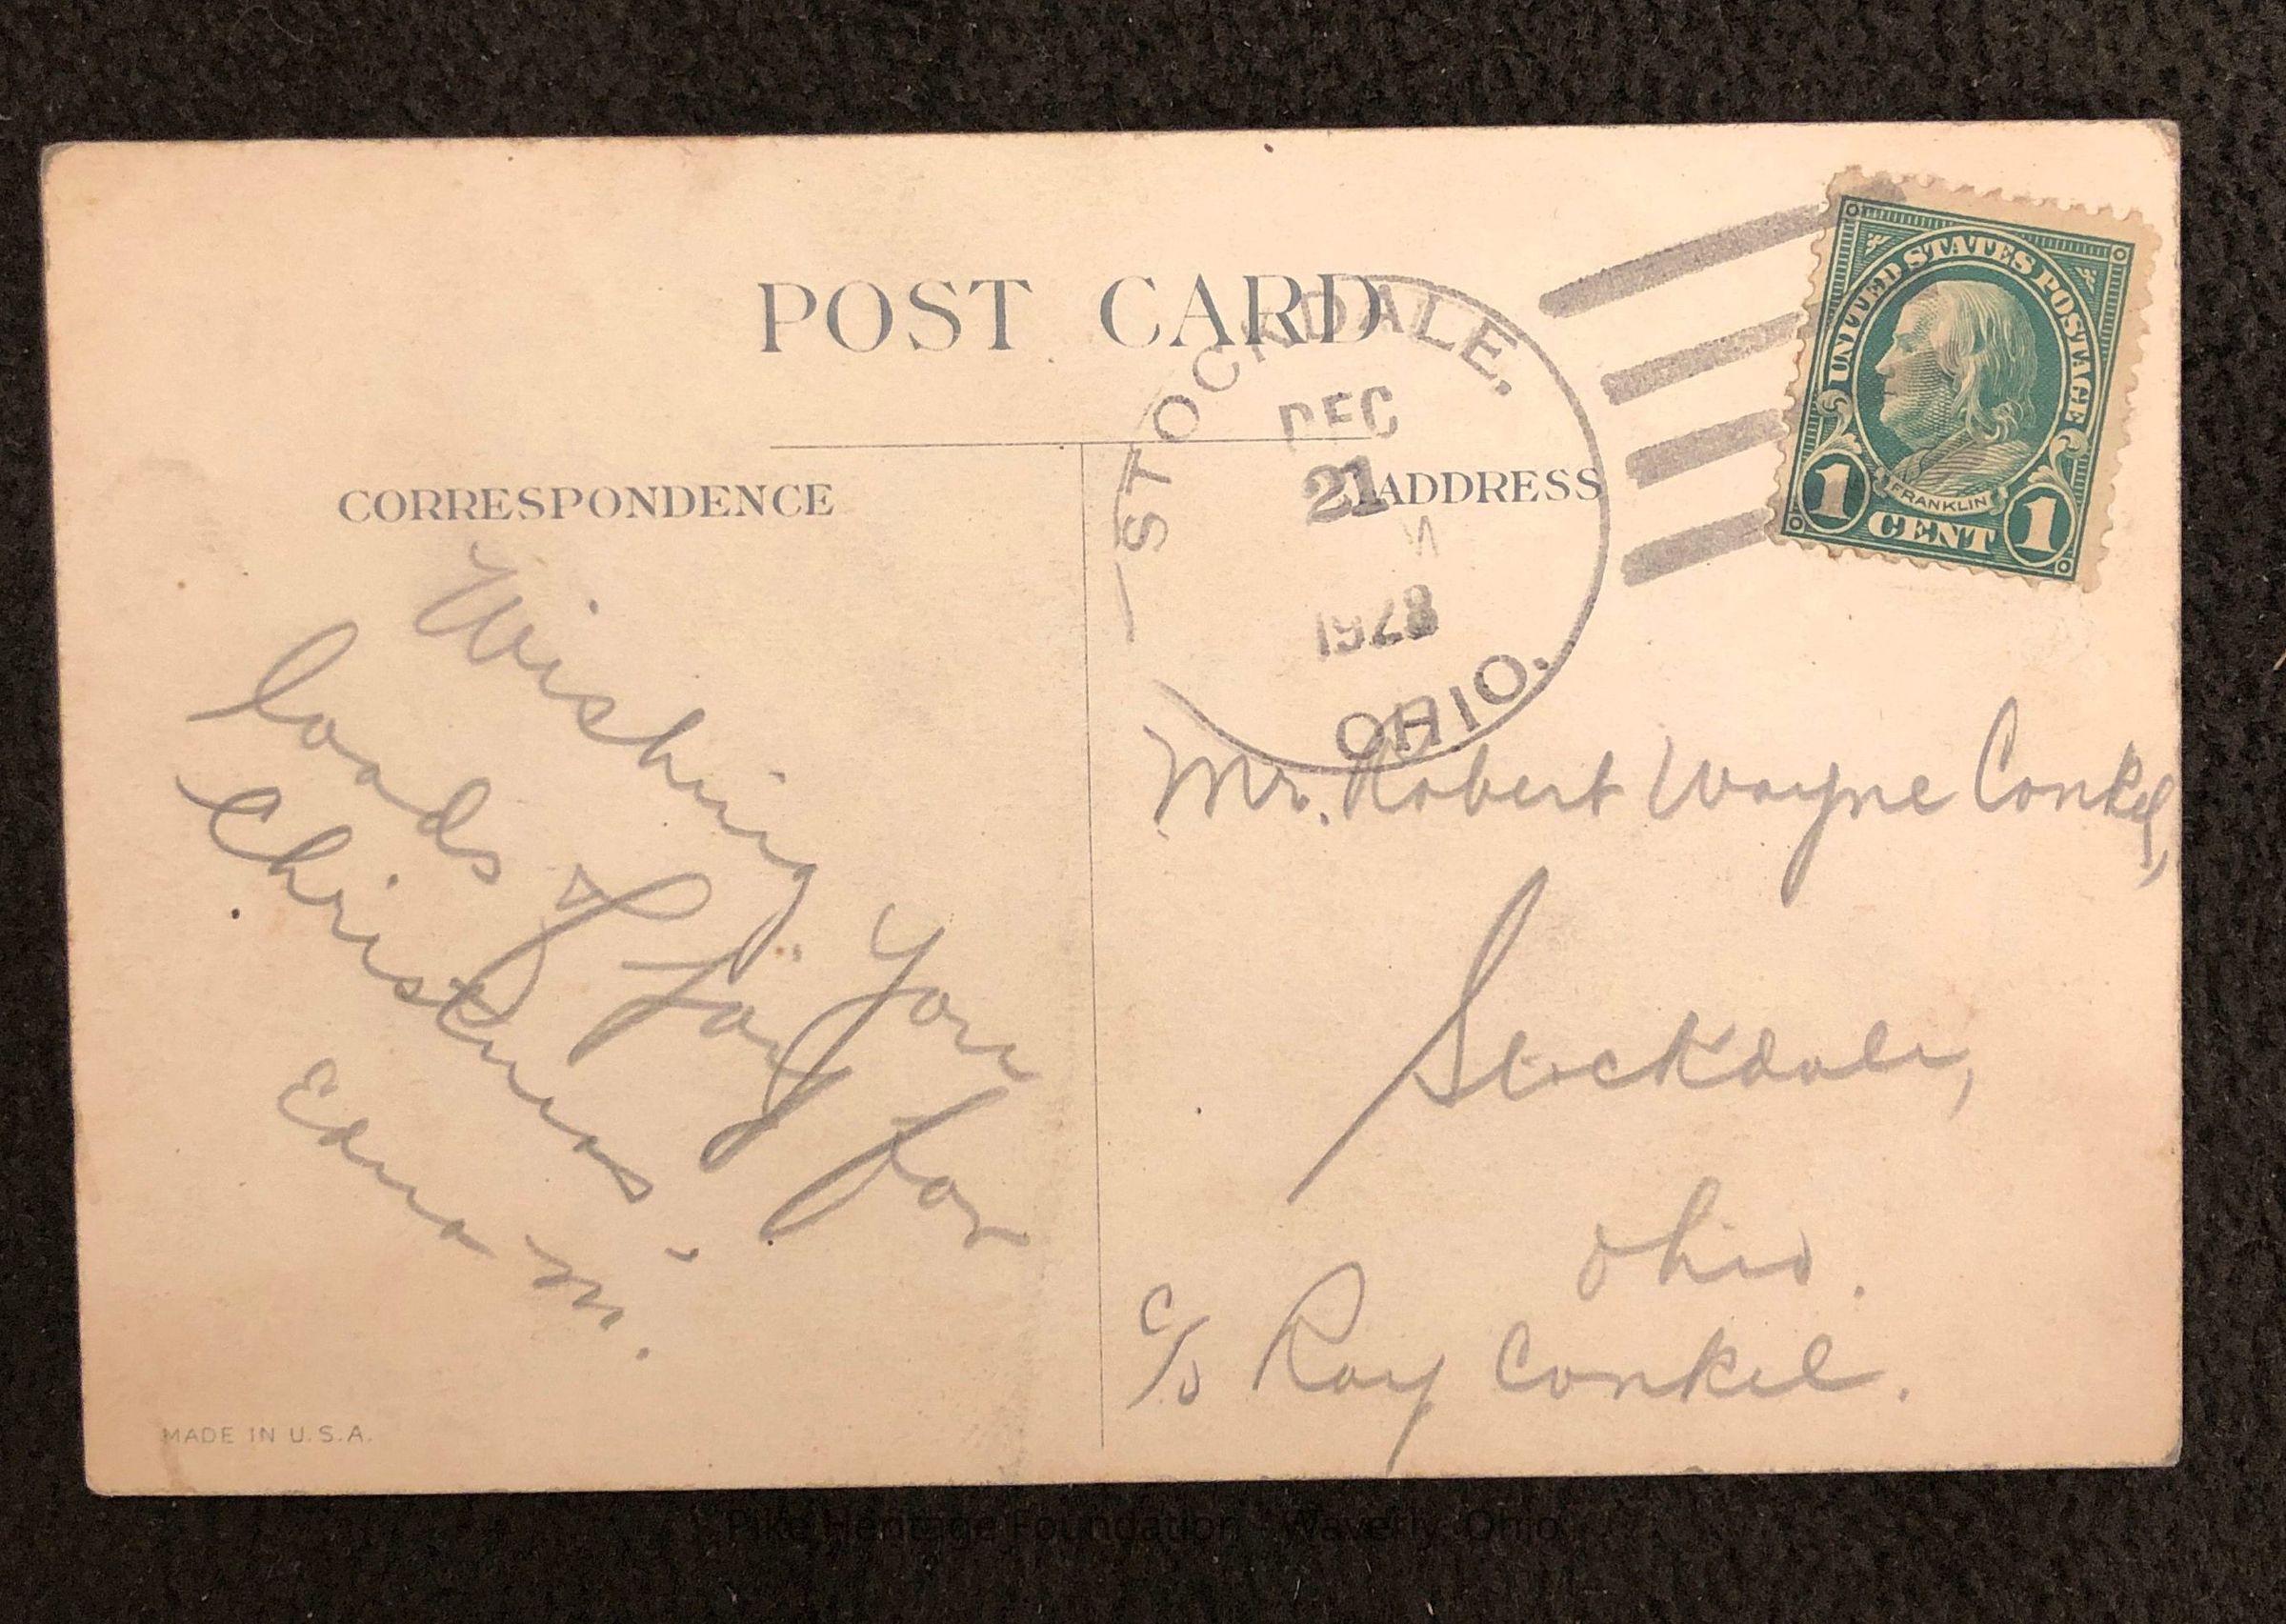 POST CARD
CORRESPONDENCE
ADDRESS
STOCKDALE.
DEC
21
1928
OHIO.
UNITED STATES POSTAGE
FRANKLIN
1 CENT 1
Wishing You
loads of Joy for
Christmas.
Edna M.
Mr. Robert Wayne Conkel,
Stockdale,
Ohio.
c/o Ray Conkel.
MADE IN U.S.A.
Pike Heritage Foundation Waverly, Ohio